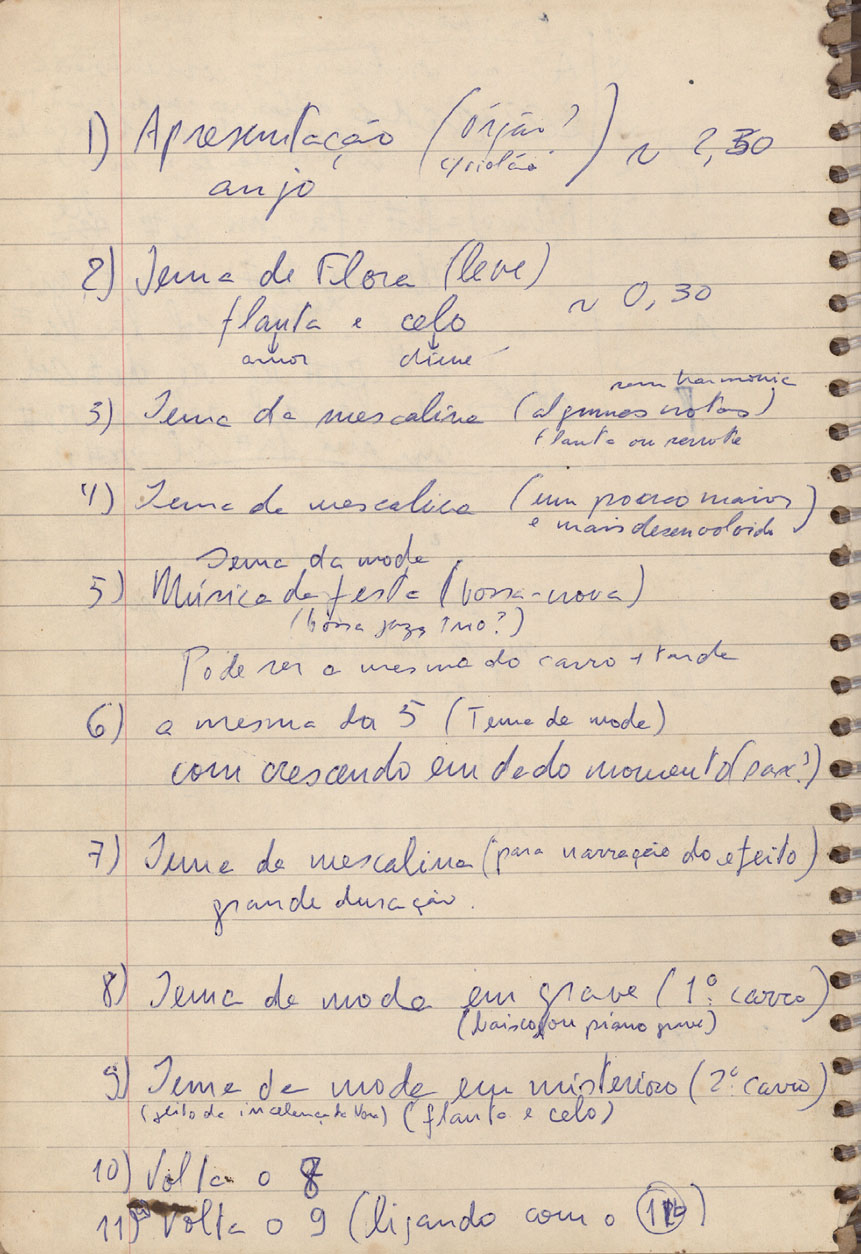 1) Apresentação (órgão?
c/violão) ~ 2,30
anjo
2) Tema de Flora (leve)
flauta e celo ~ 0,30
amor ciume
sem harmonia
3) Tema da mescalina (algumas notas)
flauta ou
4) Tema da mescalina (um pouco maior
e mais desenvolvido)
Tema da moda
5) Música da festa (bossa-nova)
(bossa jazz trio?)
Pode ser a mesma do carro + tarde
6) a mesma da 5 (Tema da moda)
com crescendo em dado momento (sax?)
7) Tema da mescalina (para narração do efeito)
grande duração.
8) Tema da moda em grave (1º carro)
(baixo, ou piano grave)
9) Tema da moda em misterioso (2º carro)
(jeito de incelença de) (flauta e celo)
10) Volta o 8
11) Volta o 9 (ligando com o